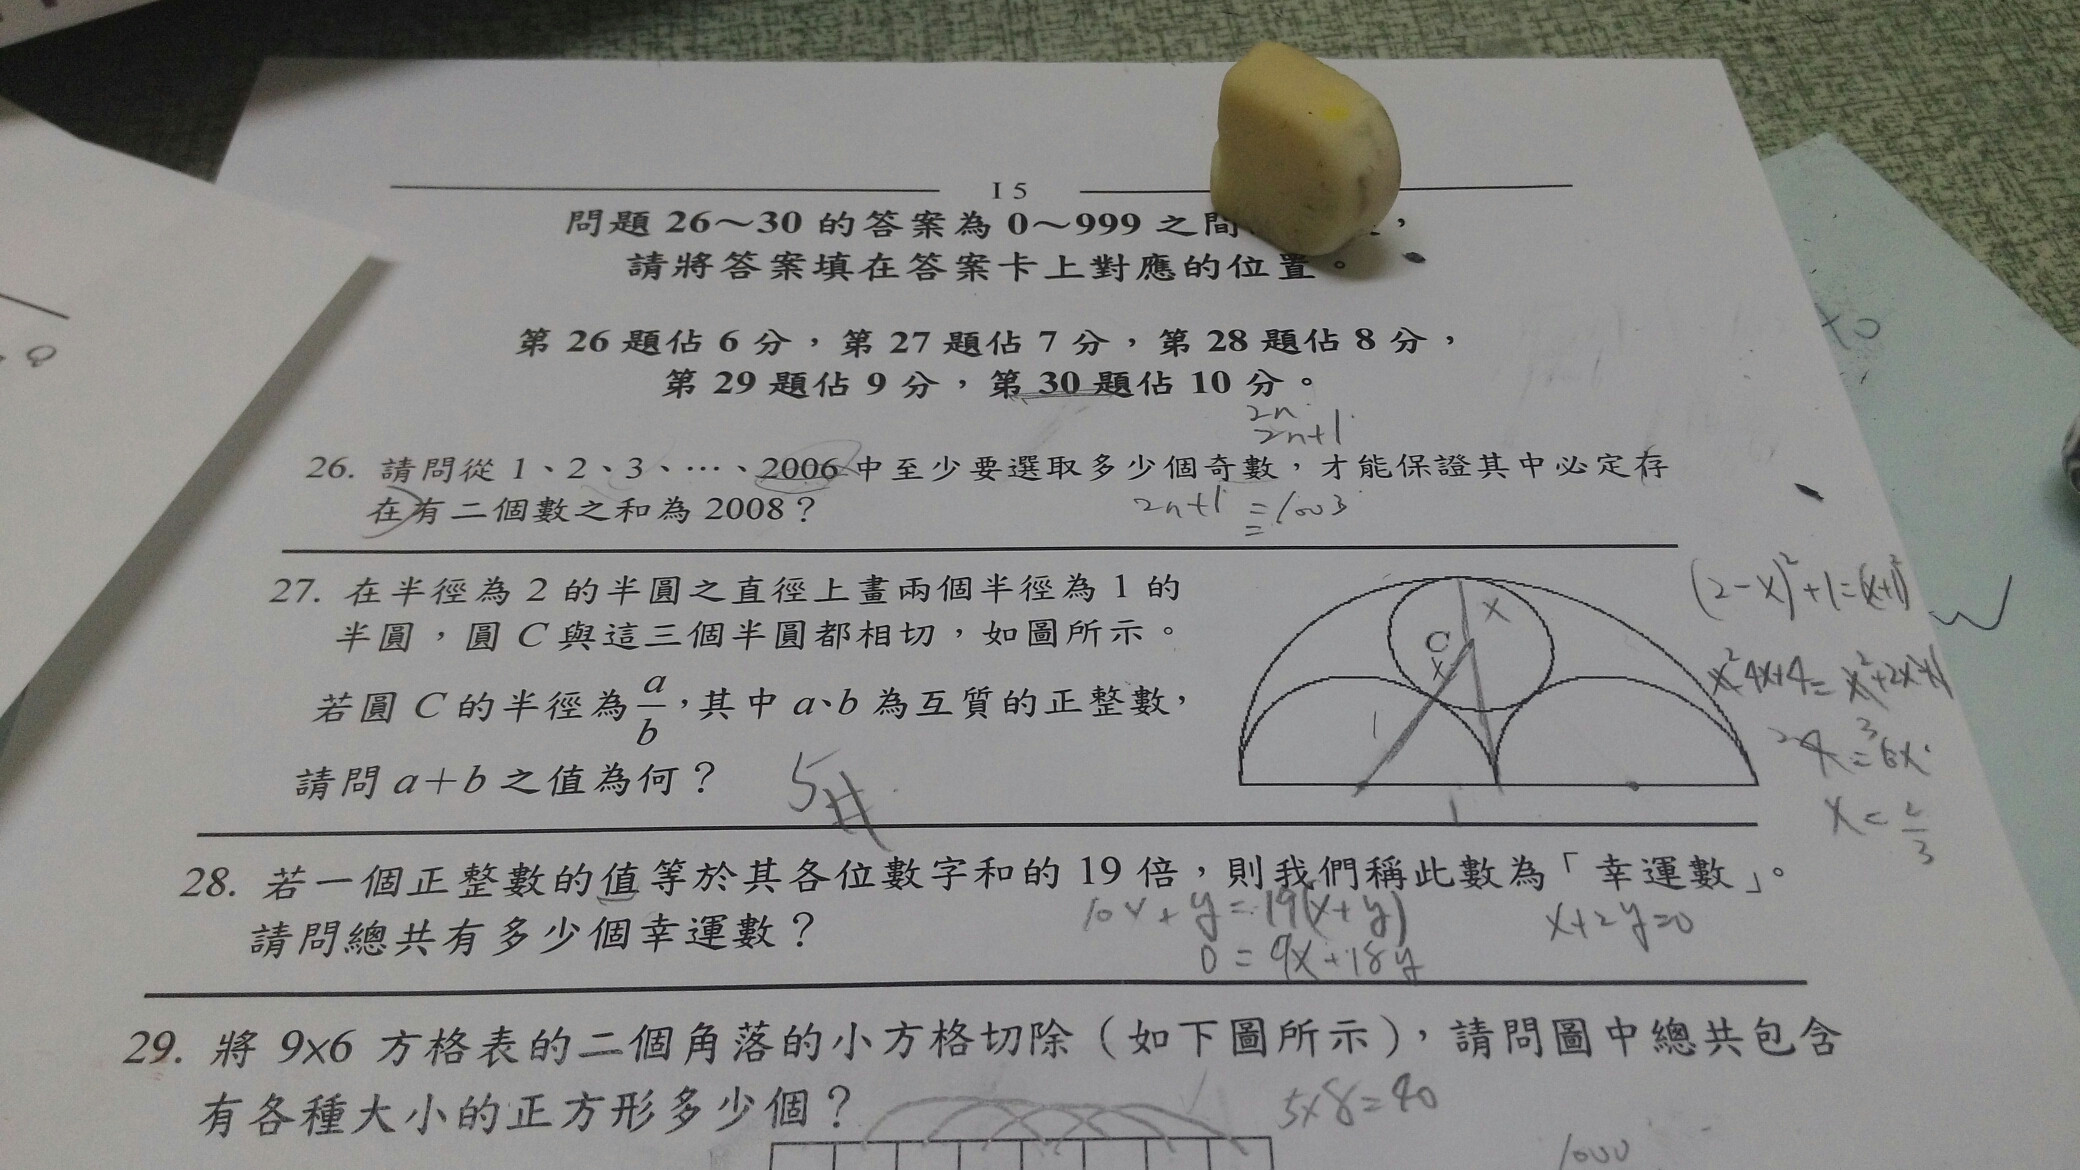 I 5
問題 26～30 的答案為 0～999 之間
請將答案填在答案卡上對應的位置。
第 26 題佔 6 分，第 27 題佔 7 分，第 28 題佔 8 分，
第 29 題佔 9 分，第 30 題佔 10 分。
2n
2n+1
26. 請問從 1、2、3、…、2006 中至少要選取多少個奇數，才能保證其中必定存
在有二個數之和為 2008？
2n+1 = 1003
27. 在半徑為 2 的半圓之直徑上畫兩個半徑為 1 的
半圓，圓 C 與這三個半圓都相切，如圖所示。
若圓 C 的半徑為 a/b，其中 a、b 為互質的正整數，
請問 a＋b 之值為何？
5
x
C
x
1
1
(2-x)²+1=(x+1)²
x²4x+4=x²+2x+1
x=2/3
28. 若一個正整數的值等於其各位數字和的 19 倍，則我們稱此數為「幸運數」。
請問總共有多少個幸運數？
10x+y=19(x+y)
0=9x+18y
x+2y=0
29. 將 9x6 方格表的二個角落的小方格切除（如下圖所示），請問圖中總共包含
有各種大小的正方形多少個？
5x8=40
1000